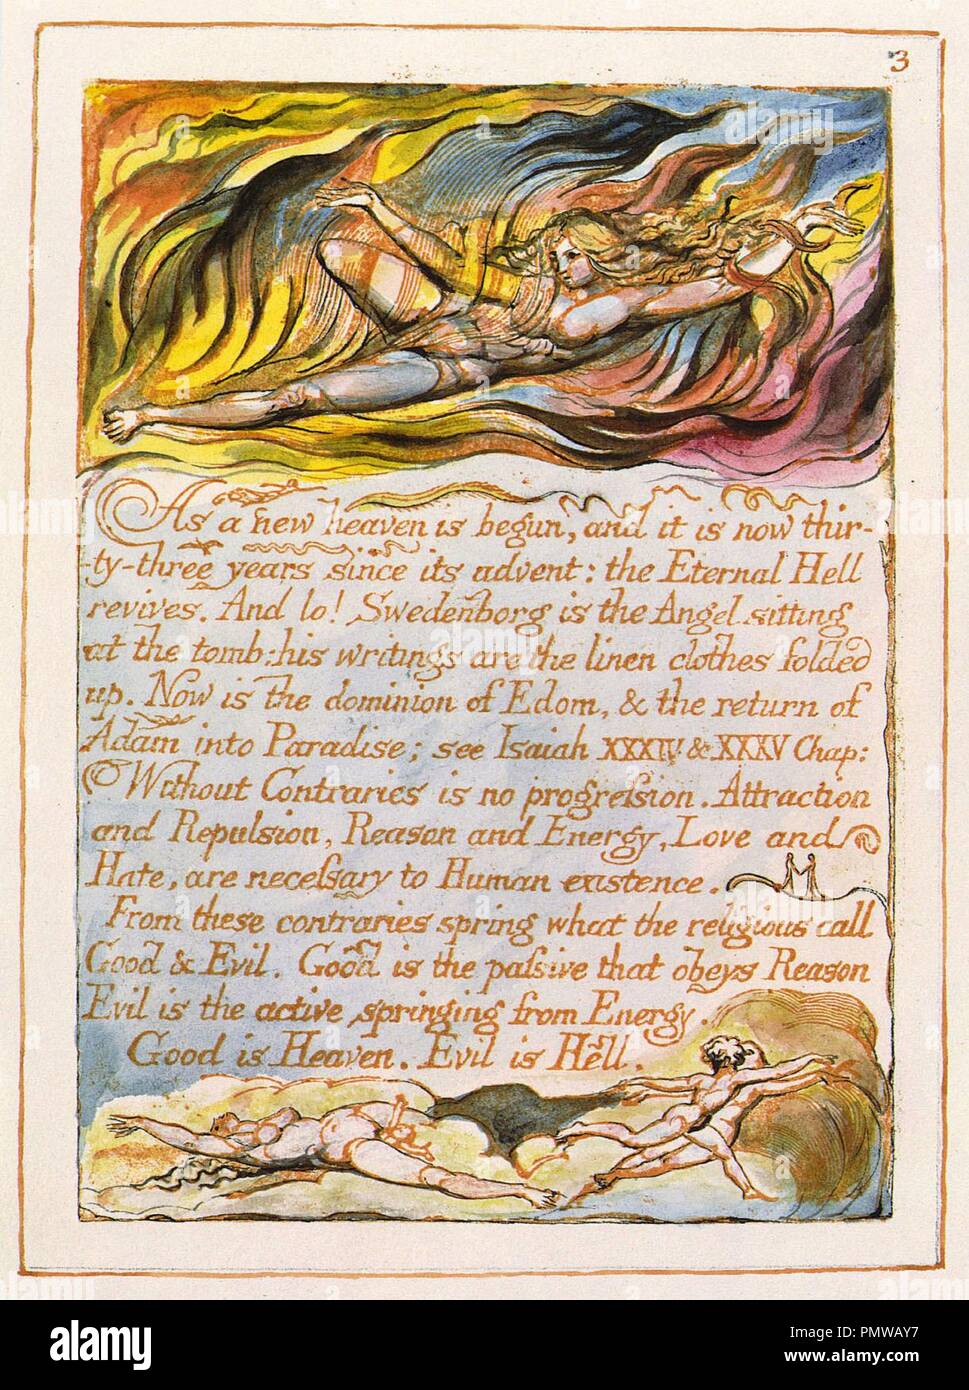 3
As a new heaven is begun, and it is now thir-
-ty-three years since its advent: the Eternal Hell
revives. And lo! Swedenborg is the Angel sitting
at the tomb: his writings are the linen clothes folded
up. Now is the dominion of Edom, & the return of
Adam into Paradise; see Isaiah XXXIV & XXXV Chap:
Without Contraries is no progreſsion. Attraction
and Repulsion, Reason and Energy, Love and
Hate, are neceſsary to Human existence.
From these contraries spring what the religious call
Good & Evil. Good is the paſsive that obeys Reason
Evil is the active springing from Energy.
Good is Heaven. Evil is Hell.
alamy
Image ID: PMWAY7
www.alamy.com